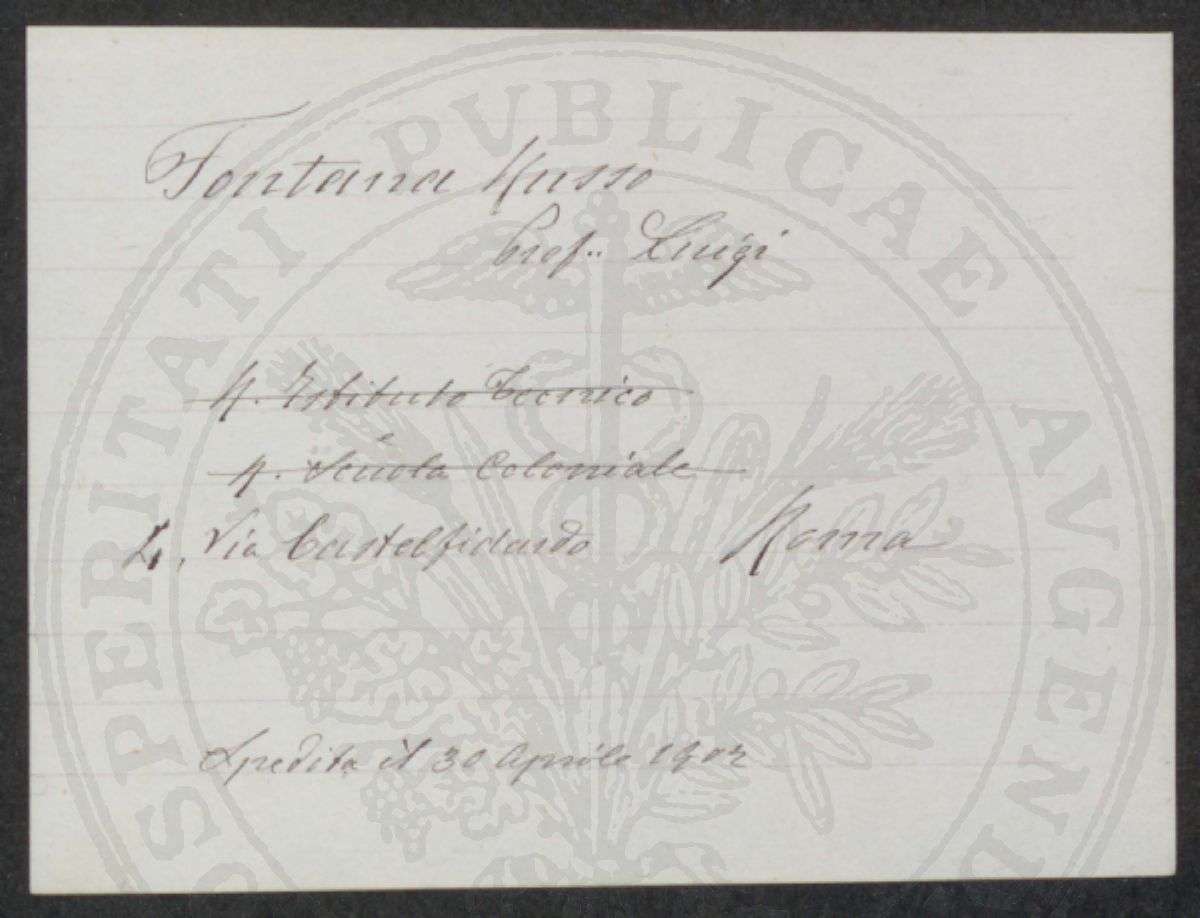 Fontana Russo
Prof. Luigi
R. Istituto Tecnico
R. Scuola Coloniale
4, Via Castelfidardo Roma
Spedita il 30 Aprile 1902
PROSPERITATI PVBLICAE AVGENDAE